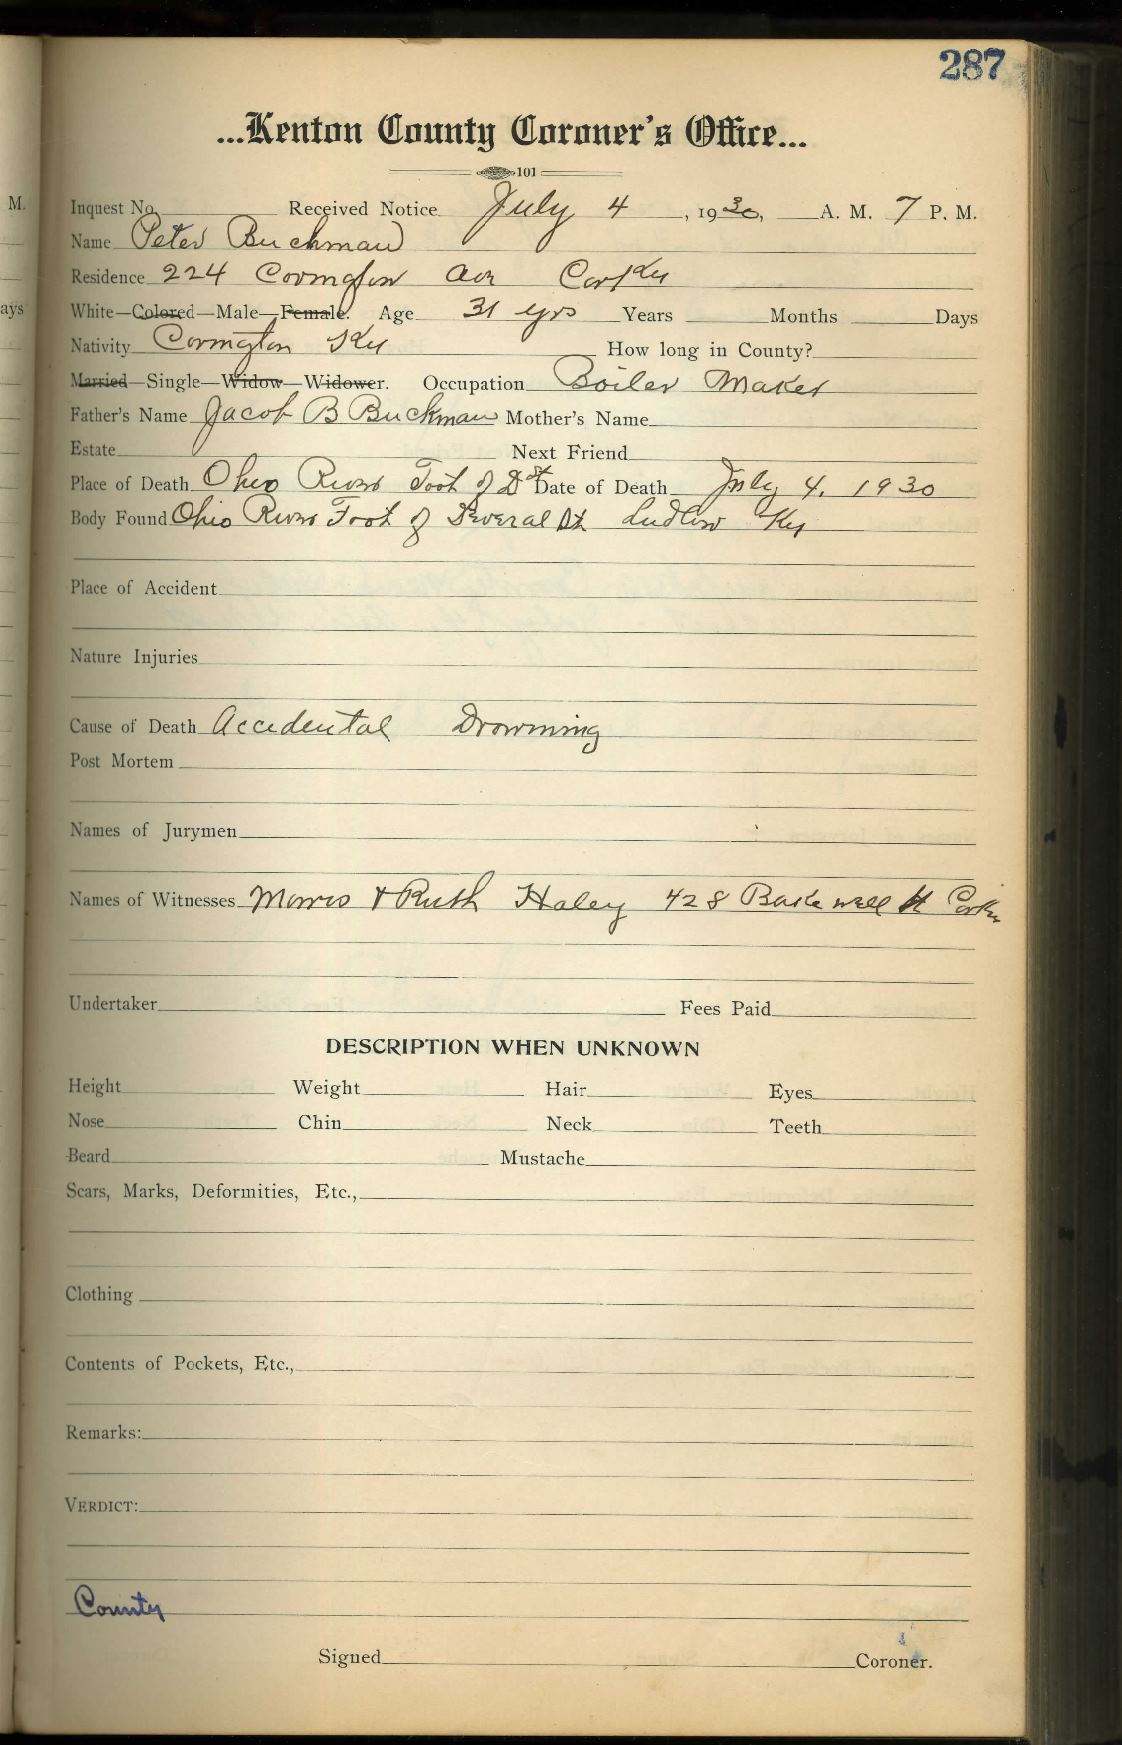 287
...Kenton County Coroner's Office...
101
M.
Inquest No. Received Notice July 4, 1930, A. M. 7 P. M.
Name Peter Buchman
Residence 224 Covington Ave Cov Ky
ays
White—Colored—Male—Female. Age 31 yrs Years Months Days
Nativity Covington Ky How long in County?
Married—Single—Widow—Widower. Occupation Boiler Maker
Father's Name Jacob B Buckman Mother's Name
Estate Next Friend
Place of Death Ohio River Foot of D St Date of Death July 4, 1930
Body Found Ohio River Foot of St Ludlow Ky
Place of Accident
Nature Injuries
Cause of Death Accidental Drowning
Post Mortem
Names of Jurymen
Names of Witnesses Morris & Ruth Haley 428 Bakewell St Cov Ky
Undertaker Fees Paid
DESCRIPTION WHEN UNKNOWN
Height Weight Hair Eyes
Nose Chin Neck Teeth
Beard Mustache
Scars, Marks, Deformities, Etc.,
Clothing
Contents of Pockets, Etc.,
Remarks:
VERDICT:
County
Signed Coroner.